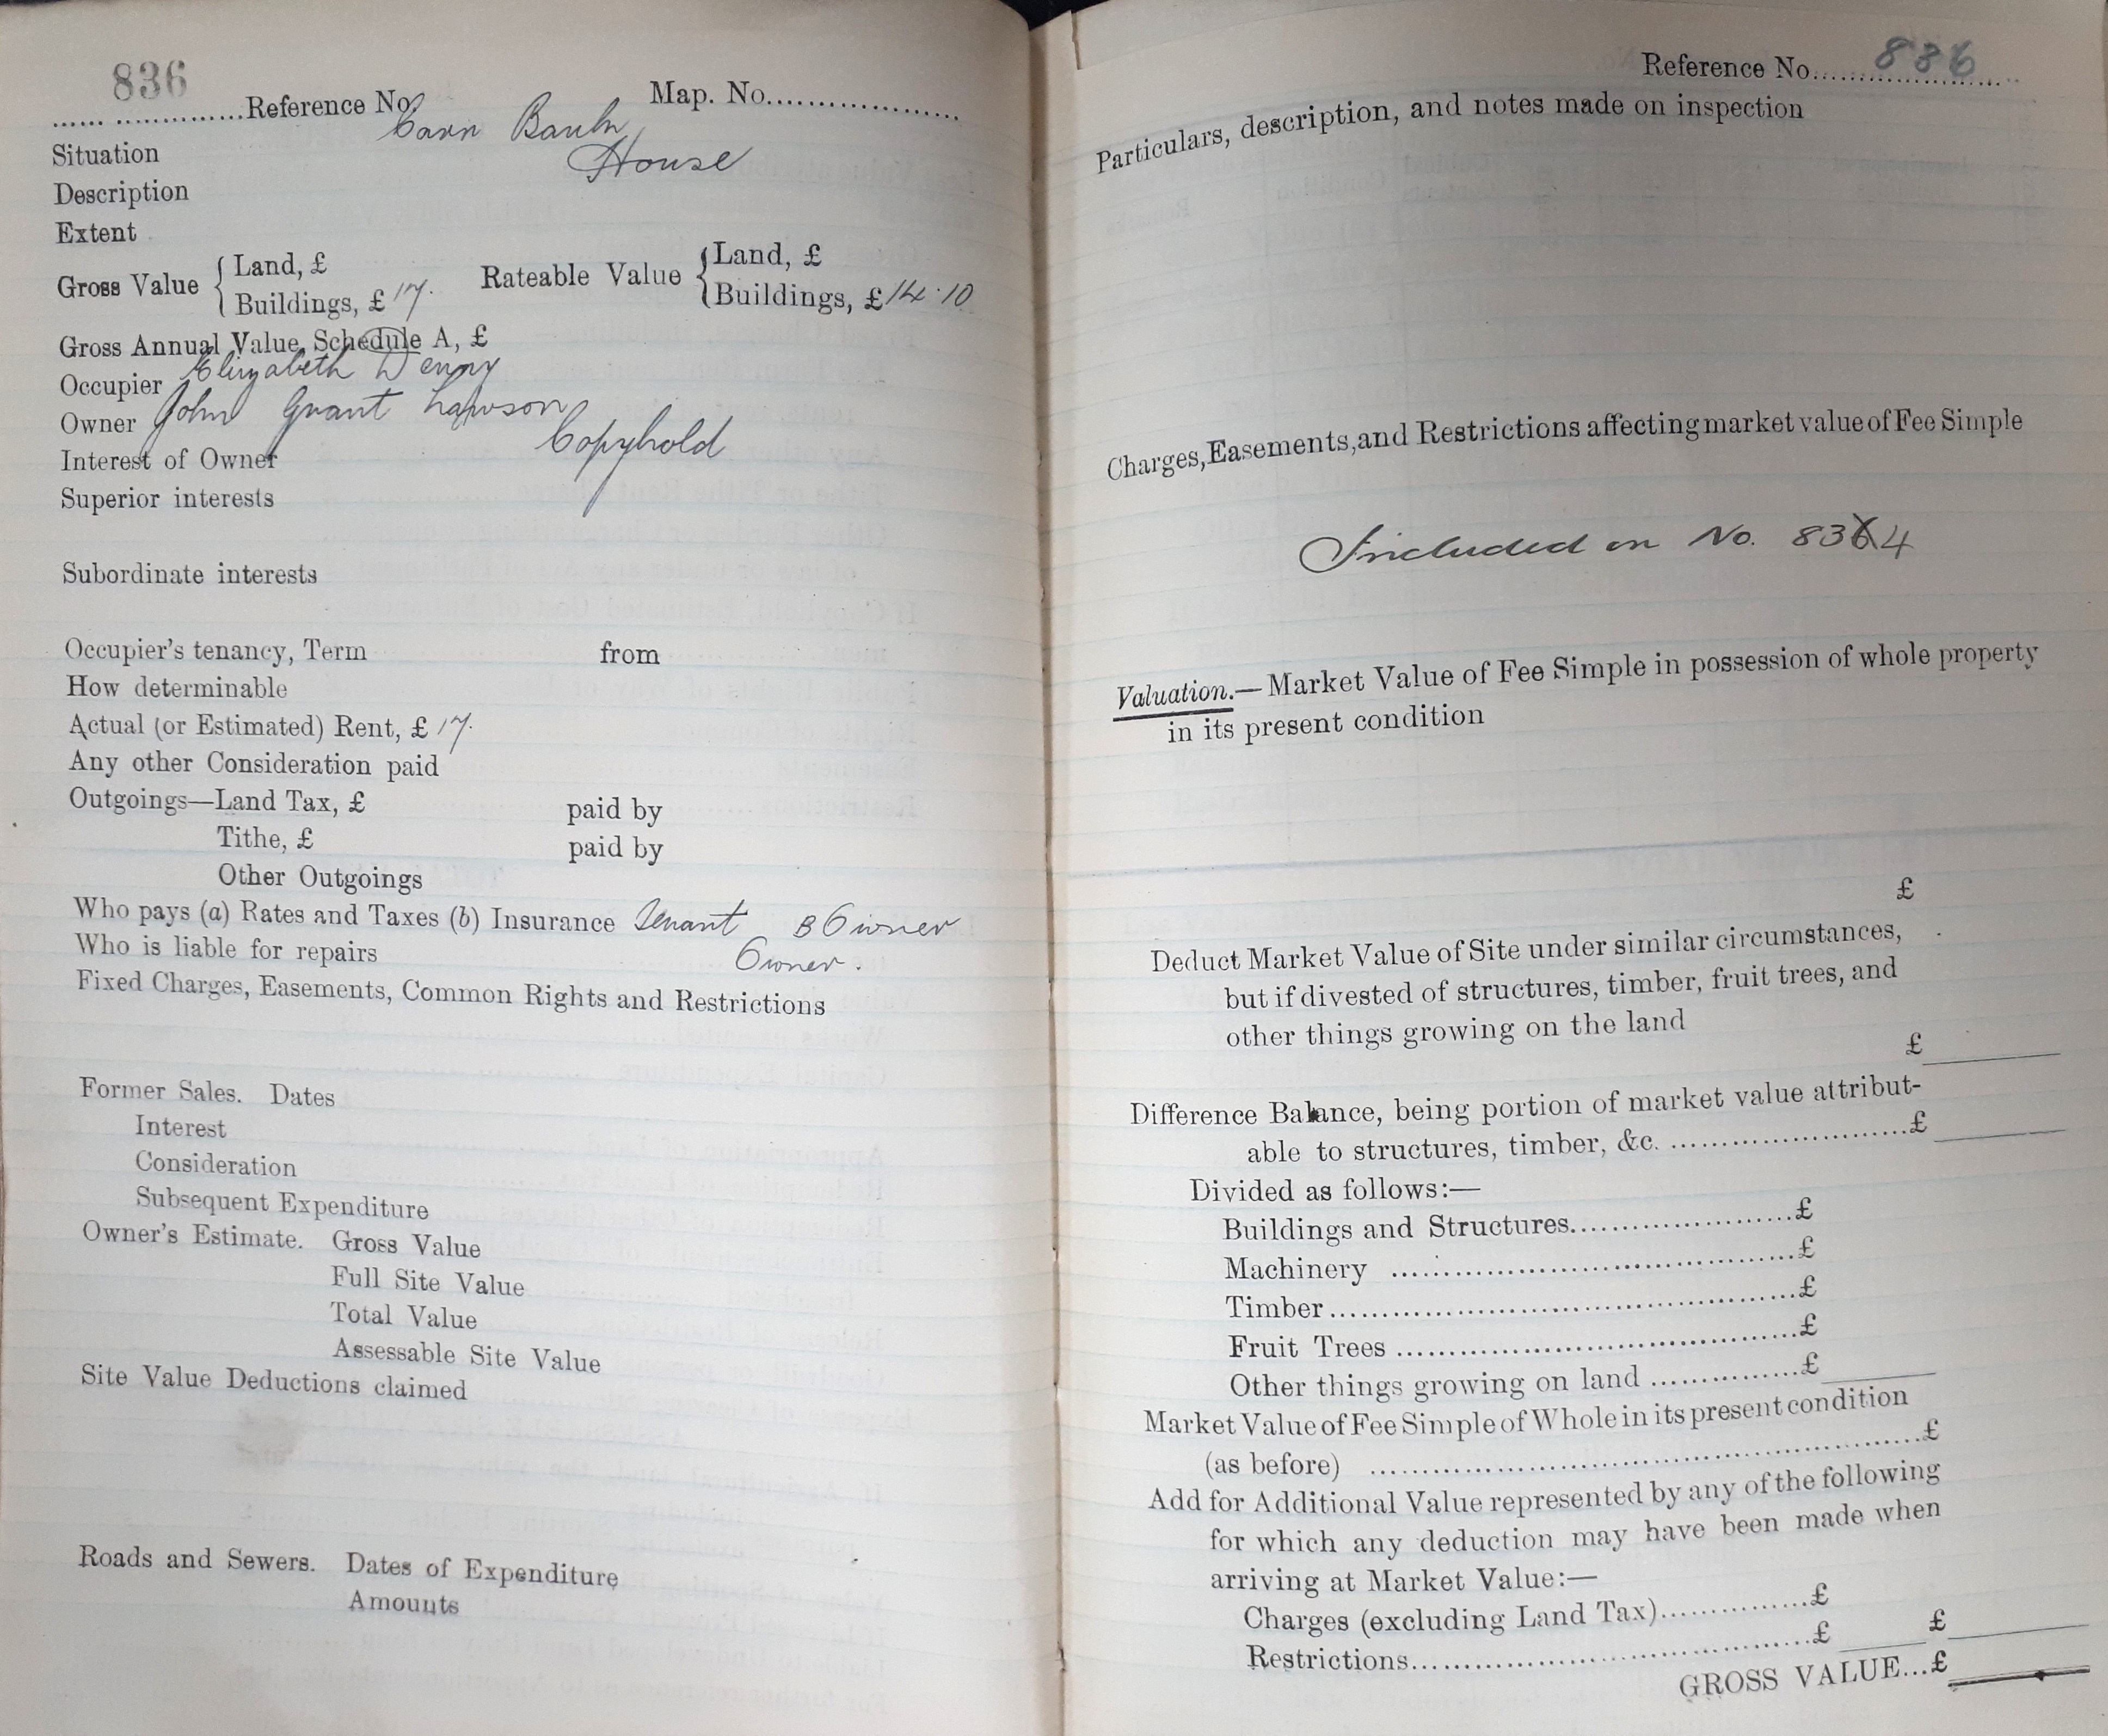 836
Reference No. Map. No.
Situation Carr Bank
Description House
Extent
Gross Value { Land, £ Rateable Value { Land, £
Buildings, £ 17. Buildings, £ 14.10
Gross Annual Value, Schedule A, £
Occupier Elizabeth Denny
Owner John Grant Lawson
Interest of Owner Copyhold
Superior interests
Subordinate interests
Occupier's tenancy, Term from
How determinable
Actual (or Estimated) Rent, £ 17.
Any other Consideration paid
Outgoings—Land Tax, £ paid by
Tithe, £ paid by
Other Outgoings
Who pays (a) Rates and Taxes (b) Insurance Tenant B Owner
Who is liable for repairs Owner.
Fixed Charges, Easements, Common Rights and Restrictions
Former Sales. Dates
Interest
Consideration
Subsequent Expenditure
Owner's Estimate. Gross Value
Full Site Value
Total Value
Assessable Site Value
Site Value Deductions claimed
Roads and Sewers. Dates of Expenditure
Amounts
Reference No. 836
Particulars, description, and notes made on inspection
Charges, Easements, and Restrictions affecting market value of Fee Simple
Included in No. 834
Valuation.—Market Value of Fee Simple in possession of whole property
in its present condition
£
Deduct Market Value of Site under similar circumstances,
but if divested of structures, timber, fruit trees, and
other things growing on the land
£
Difference Balance, being portion of market value attribut-
able to structures, timber, &c. £
Divided as follows:—
Buildings and Structures £
Machinery £
Timber £
Fruit Trees £
Other things growing on land £
Market Value of Fee Simple of Whole in its present condition
(as before) £
Add for Additional Value represented by any of the following
for which any deduction may have been made when
arriving at Market Value:—
Charges (excluding Land Tax) £
Restrictions £ £
GROSS VALUE... £